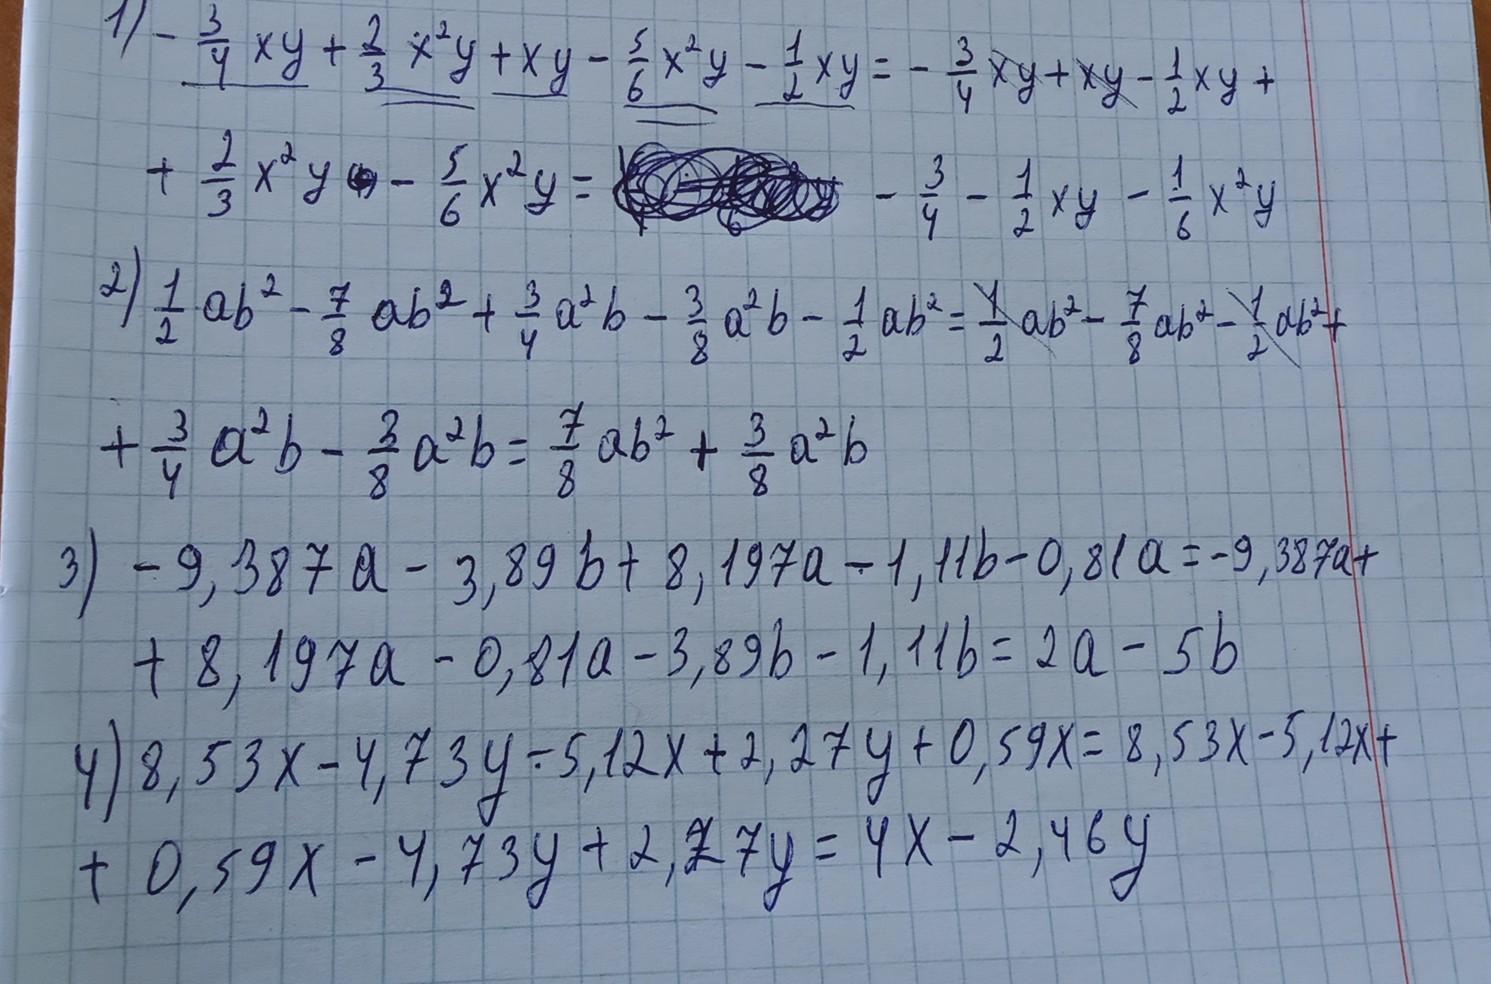 1) - 3/4 xy + 2/3 x²y + xy - 5/6 x²y - 1/2 xy = - 3/4 xy + xy - 1/2 xy +
+ 2/3 x²y - 5/6 x²y = - 3/4 - 1/2 xy - 1/6 x²y
2) 1/2 ab² - 7/8 ab² + 3/4 a²b - 3/8 a²b - 1/2 ab² = 1/2 ab² - 7/8 ab² - 1/2 ab² +
+ 3/4 a²b - 3/8 a²b = 7/8 ab² + 3/8 a²b
3) -9,387a - 3,89b + 8,197a - 1,11b - 0,81a = -9,387a +
+ 8,197a - 0,81a - 3,89b - 1,11b = 2a - 5b
4) 8,53x - 4,73y - 5,12x + 2,27y + 0,59x = 8,53x - 5,12x +
+ 0,59x - 4,73y + 2,27y = 4x - 2,46y